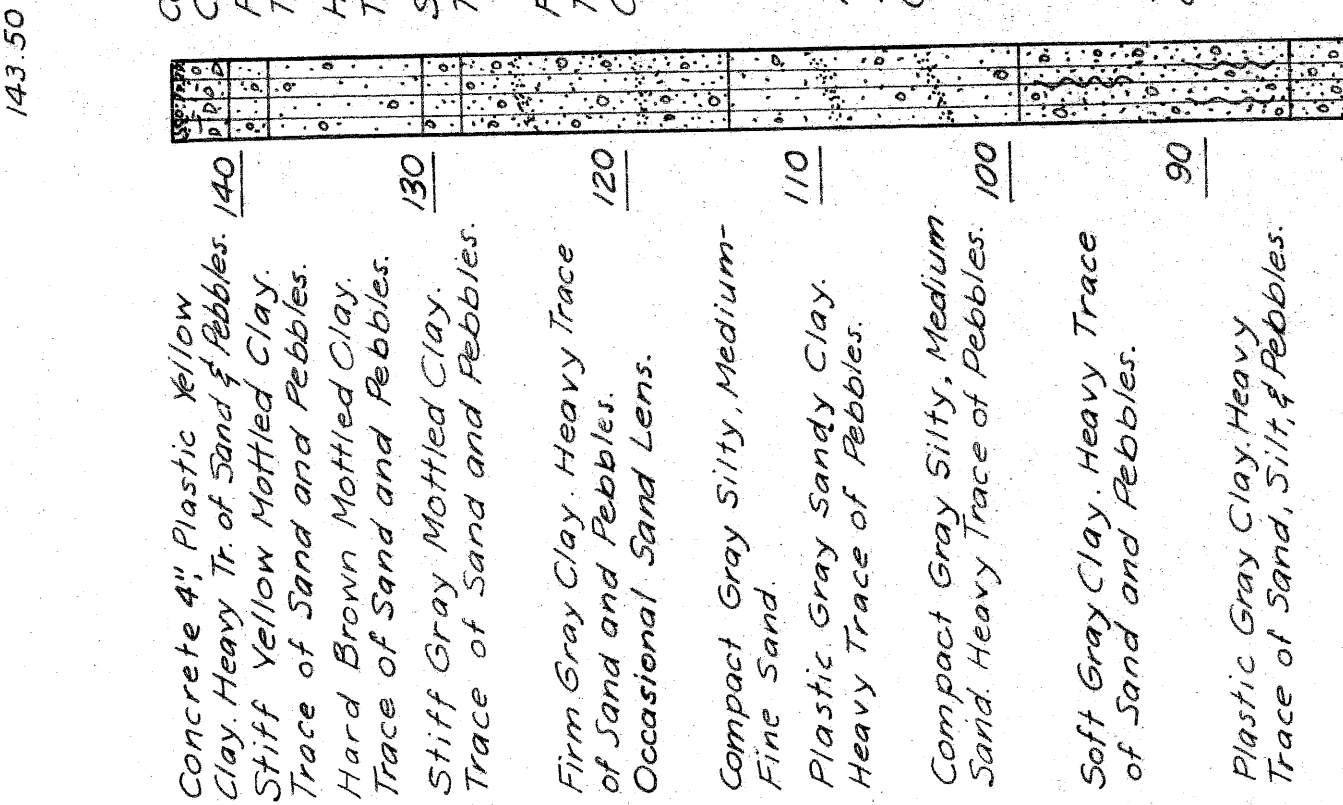 143.50
Concrete 4", Plastic Yellow
Clay. Heavy Tr. of Sand & Pebbles.
Stiff Yellow Mottled Clay.
Trace of Sand and Pebbles.
Hard Brown Mottled Clay.
Trace of Sand and Pebbles.
Stiff Gray Mottled Clay.
Trace of Sand and Pebbles.
Firm Gray Clay. Heavy Trace
of Sand and Pebbles.
Occasional Sand Lens.
Compact Gray Silty, Medium-
Fine Sand.
Plastic Gray Sandy Clay.
Heavy Trace of Pebbles.
Compact Gray Silty, Medium
Sand. Heavy Trace of Pebbles.
Soft Gray Clay. Heavy Trace
of Sand and Pebbles.
Plastic Gray Clay. Heavy
Trace of Sand, Silt, & Pebbles.
140
130
120
110
100
90